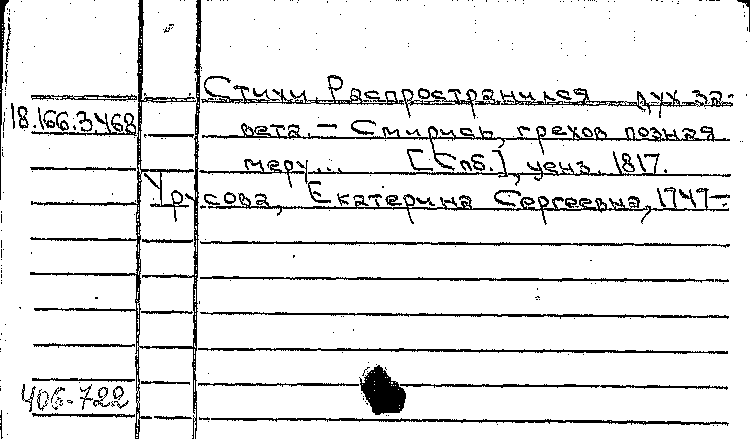 Стихи. Распространился дух за-
18.166.3.468 вета. – Смирись, грехов познав
меру... [Спб.], ценз. 1817.
Урусова, Екатерина Сергеевна, 1747–
406-722